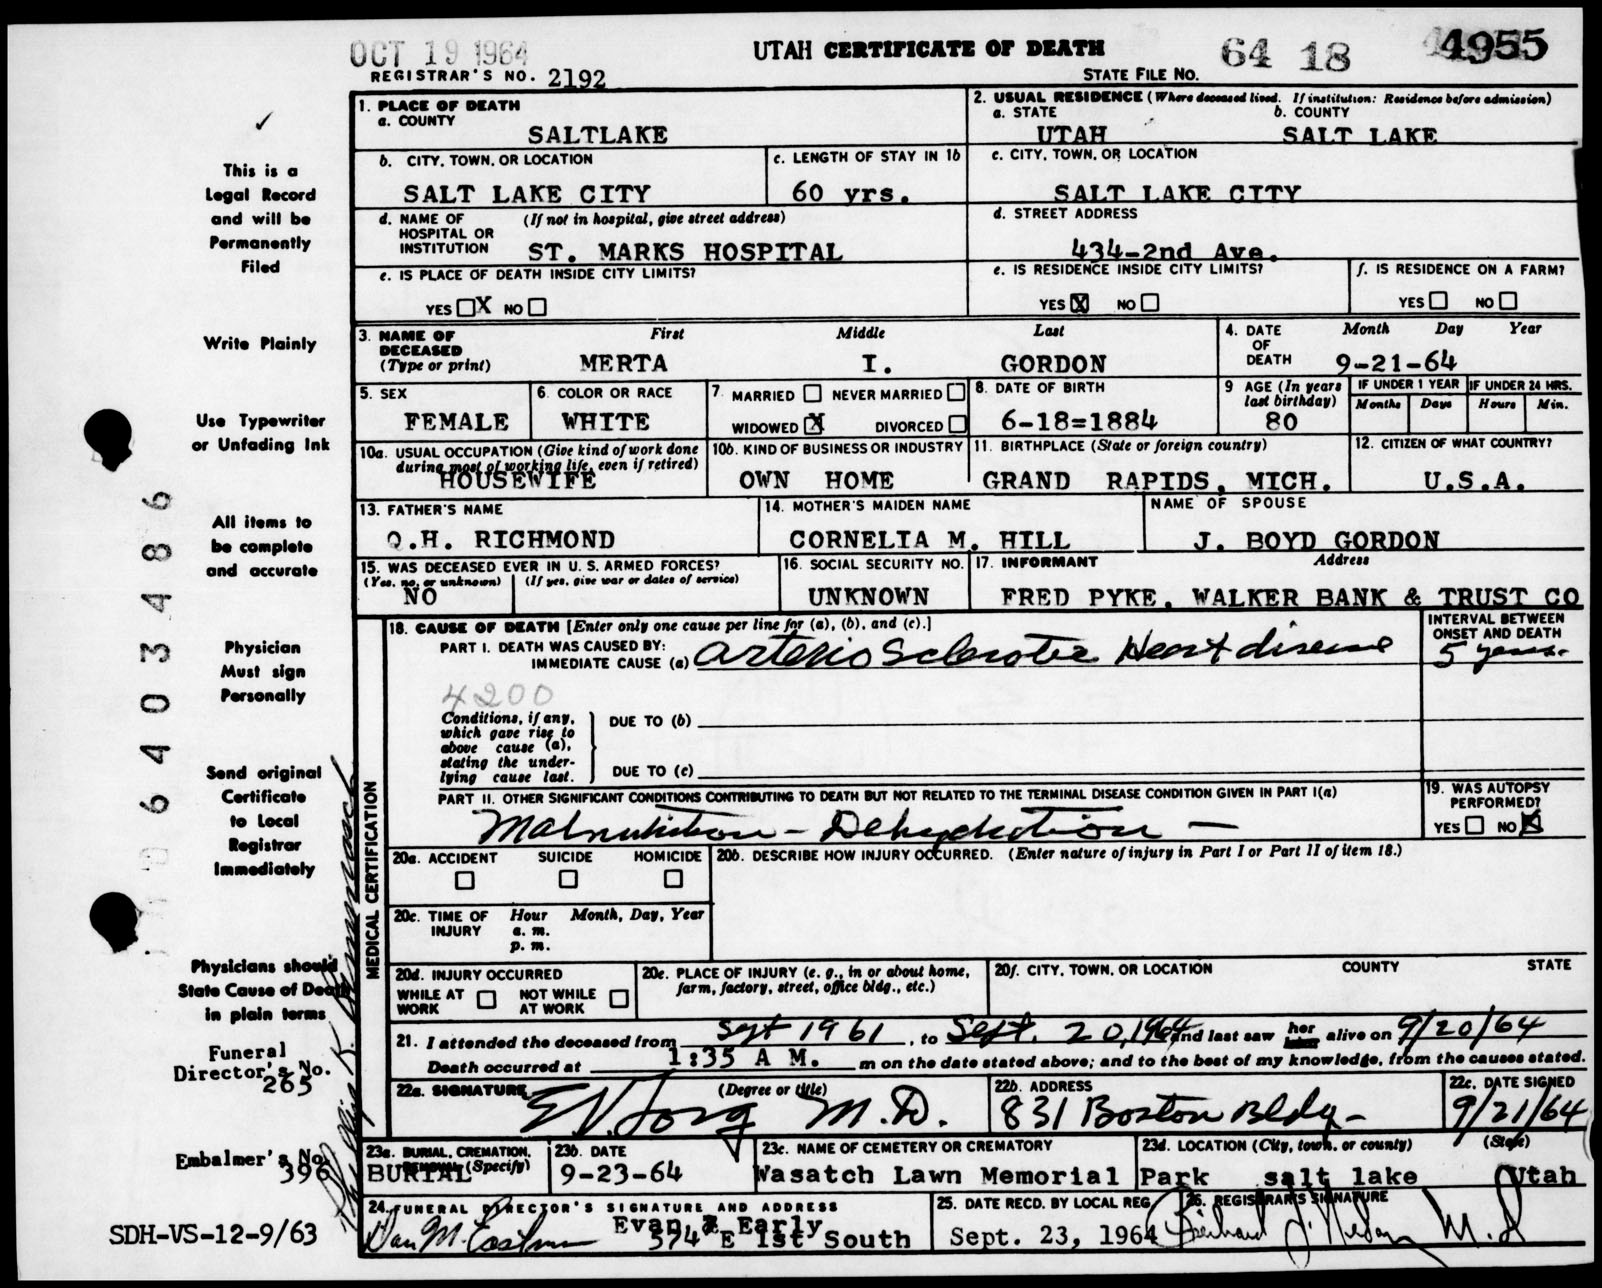 OCT 19 1964
UTAH CERTIFICATE OF DEATH
64 18 4955
REGISTRAR'S NO. 2192
STATE FILE NO.
1. PLACE OF DEATH
a. COUNTY
SALTLAKE
2. USUAL RESIDENCE (Where deceased lived. If institution: Residence before admission)
a. STATE
UTAH
b. COUNTY
SALT LAKE
b. CITY, TOWN, OR LOCATION
SALT LAKE CITY
c. LENGTH OF STAY IN 1b
60 yrs.
c. CITY, TOWN, OR LOCATION
SALT LAKE CITY
d. NAME OF HOSPITAL OR INSTITUTION
(If not in hospital, give street address)
ST. MARKS HOSPITAL
d. STREET ADDRESS
434-2nd Ave.
e. IS PLACE OF DEATH INSIDE CITY LIMITS?
YES X NO
e. IS RESIDENCE INSIDE CITY LIMITS?
YES X NO
f. IS RESIDENCE ON A FARM?
YES NO
3. NAME OF DECEASED
(Type or print)
First Middle Last
MERTA I. GORDON
4. DATE OF DEATH
Month Day Year
9-21-64
5. SEX
FEMALE
6. COLOR OR RACE
WHITE
7. MARRIED NEVER MARRIED
WIDOWED X DIVORCED
8. DATE OF BIRTH
6-18=1884
9 AGE (In years last birthday)
80
IF UNDER 1 YEAR
Months Days
IF UNDER 24 HRS.
Hours Min.
10a. USUAL OCCUPATION (Give kind of work done during most of working life, even if retired)
HOUSEWIFE
10b. KIND OF BUSINESS OR INDUSTRY
OWN HOME
11. BIRTHPLACE (State or foreign country)
GRAND RAPIDS, MICH.
12. CITIZEN OF WHAT COUNTRY?
U.S.A.
13. FATHER'S NAME
Q.H. RICHMOND
14. MOTHER'S MAIDEN NAME
CORNELIA M. HILL
NAME OF SPOUSE
J. BOYD GORDON
15. WAS DECEASED EVER IN U. S. ARMED FORCES?
(Yes, no, or unknown) (If yes, give war or dates of service)
NO
16. SOCIAL SECURITY NO.
UNKNOWN
17. INFORMANT Address
FRED PYKE, WALKER BANK & TRUST CO
MEDICAL CERTIFICATION
18. CAUSE OF DEATH [Enter only one cause per line for (a), (b), and (c).]
PART I. DEATH WAS CAUSED BY:
IMMEDIATE CAUSE (a) Arterio Sclerotic Heart disease
INTERVAL BETWEEN ONSET AND DEATH
5 years.
4200
Conditions, if any, which gave rise to above cause (a), stating the underlying cause last.
DUE TO (b)
DUE TO (c)
PART II. OTHER SIGNIFICANT CONDITIONS CONTRIBUTING TO DEATH BUT NOT RELATED TO THE TERMINAL DISEASE CONDITION GIVEN IN PART I(a)
Malnutrition - Dehydration -
19. WAS AUTOPSY PERFORMED?
YES NO X
20a. ACCIDENT SUICIDE HOMICIDE
20b. DESCRIBE HOW INJURY OCCURRED. (Enter nature of injury in Part I or Part II of item 18.)
20c. TIME OF INJURY
Hour Month, Day, Year
a. m.
p. m.
20d. INJURY OCCURRED
WHILE AT WORK NOT WHILE AT WORK
20e. PLACE OF INJURY (e. g., in or about home, farm, factory, street, office bldg., etc.)
20f. CITY, TOWN, OR LOCATION COUNTY STATE
21. I attended the deceased from Sept 1961, to Sept. 20, 1964 and last saw her alive on 9/20/64
Death occurred at 1:35 A M. m on the date stated above; and to the best of my knowledge, from the causes stated.
22a. SIGNATURE (Degree or title)
M.D.
22b. ADDRESS
831 Boston Bldg -
22c. DATE SIGNED
9/21/64
23a. BURIAL, CREMATION, REMOVAL (Specify)
BURIAL
23b. DATE
9-23-64
23c. NAME OF CEMETERY OR CREMATORY
Wasatch Lawn Memorial Park
23d. LOCATION (City, town, or county) (State)
salt lake Utah
24. FUNERAL DIRECTOR'S SIGNATURE AND ADDRESS
Evan & Early
574 E 1st South
25. DATE RECD. BY LOCAL REG
Sept. 23, 1964
26. REGISTRAR'S SIGNATURE
M.D
This is a
Legal Record
and will be
Permanently
Filed
Write Plainly
Use Typewriter
or Unfading Ink
All items to
be complete
and accurate
Physician
Must sign
Personally
Send original
Certificate
to Local
Registrar
Immediately
Physicians should
State Cause of Death
in plain terms
Funeral
Director's No.
265
Embalmer's No.
396
SDH-VS-12-9/63